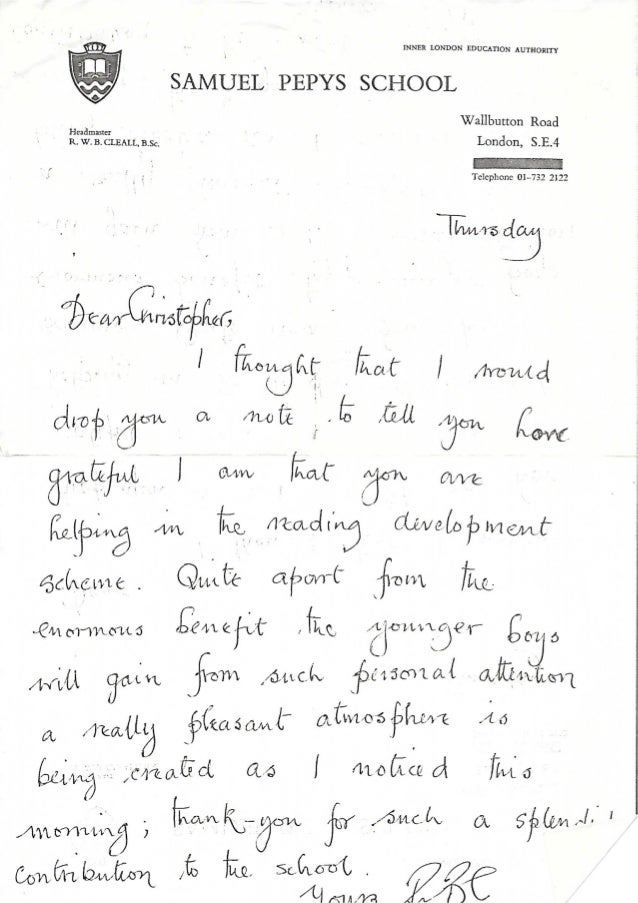 INNER LONDON EDUCATION AUTHORITY
SAMUEL PEPYS SCHOOL
Headmaster
R. W. B. CLEALL, B.Sc.
Wallbutton Road
London, S.E.4
Telephone 01-732 2122
Thursday
Dear Christopher,
I thought that I would
drop you a note to tell you how
grateful I am that you are
helping in the reading development
scheme. Quite apart from the
enormous benefit the younger boys
will gain from such personal attention
a really pleasant atmosphere is
being created as I noticed this
morning; thank-you for such a splendid
contribution to the school.
Yours